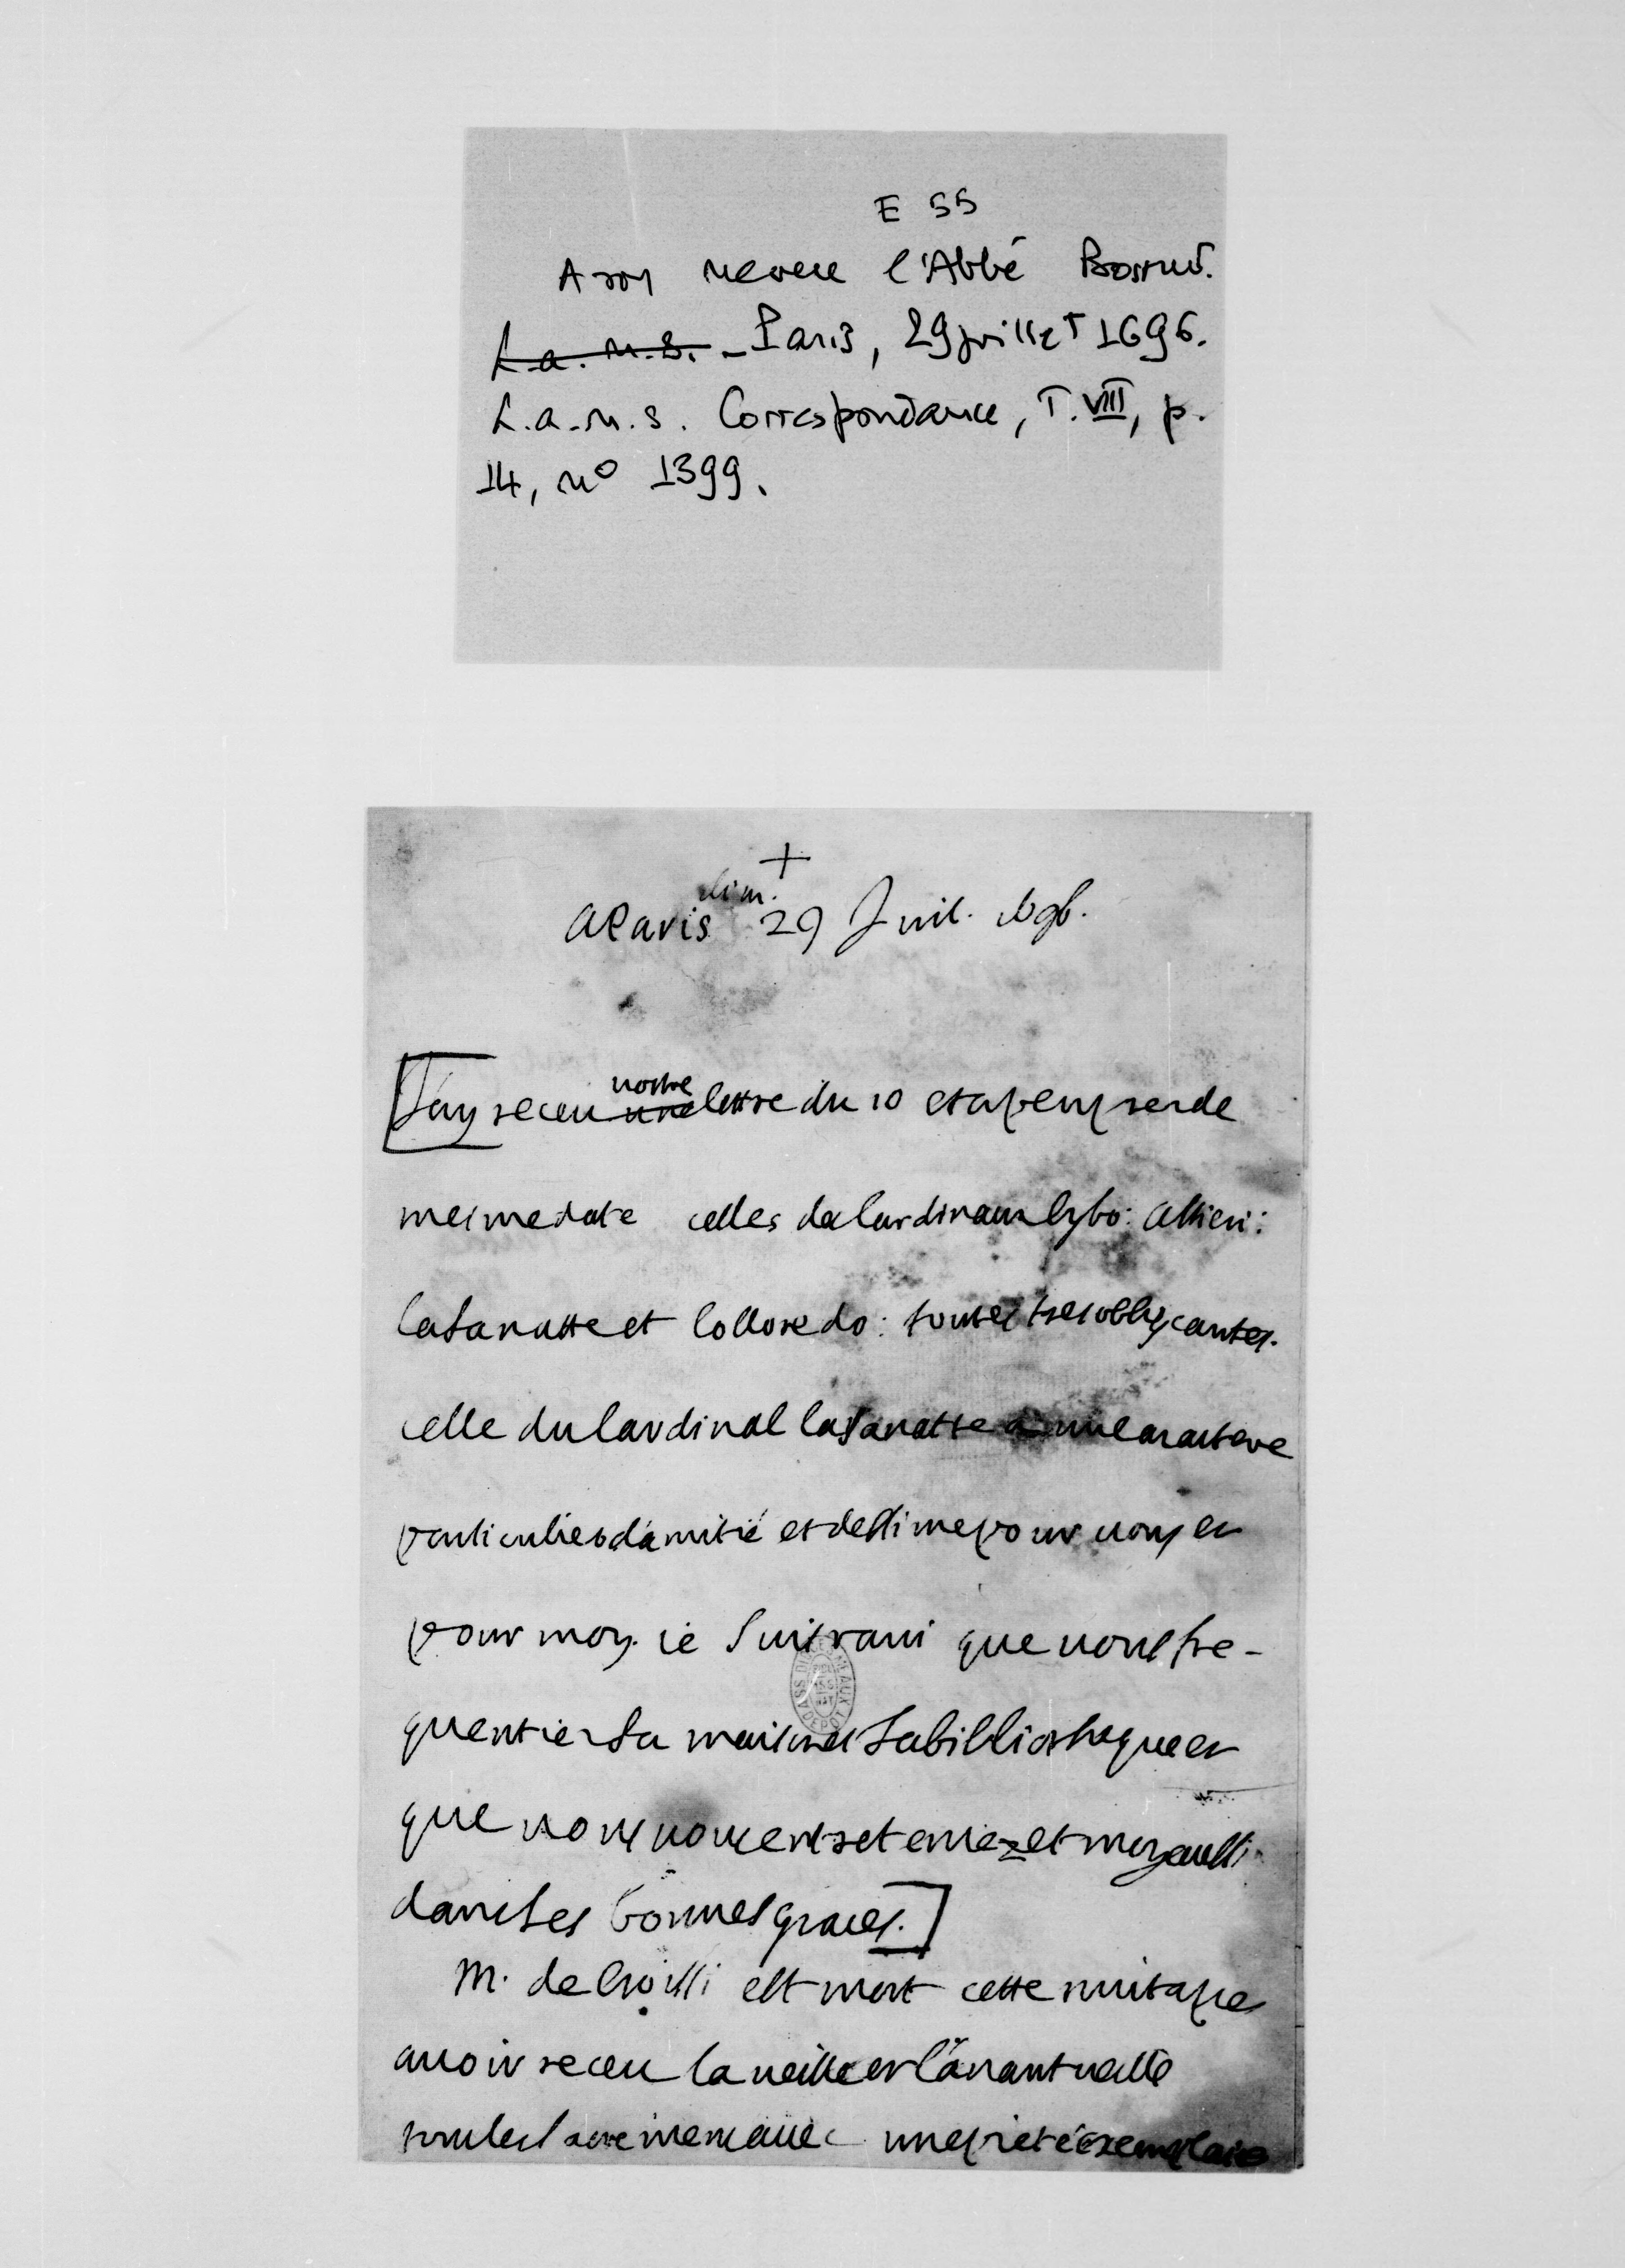 E 55
A son neveu l'Abbé Bossuet.
L.a.n.s. - Paris, 29 juillet 1696.
L.a.n.s. Correspondance, T. VIII, p.
14, nº 1399.
+
dim.
A Paris 29 Juil. 1696.
J'ay receu vostre une lettre du 10 et apeu pres de
mesme date celles de Cardinaux Cybo: Altieri:
Casanatte et Colloredo: toutes tres obligeantes.
celle du Cardinal Casanatte a un caractere
particulier d'amitié et d'estime pour vous et
pour moy. ie suis ravi que vous fre-
quentiez sa maison et sa bibliotheque et
que vous vous entreteniez et moy aussi
dans ses bonnes graces.]
M. de Croissi est mort cette nuit apres
avoir receu la veille et l'avant veille
tous les sacremens avec une pieté exemplaire